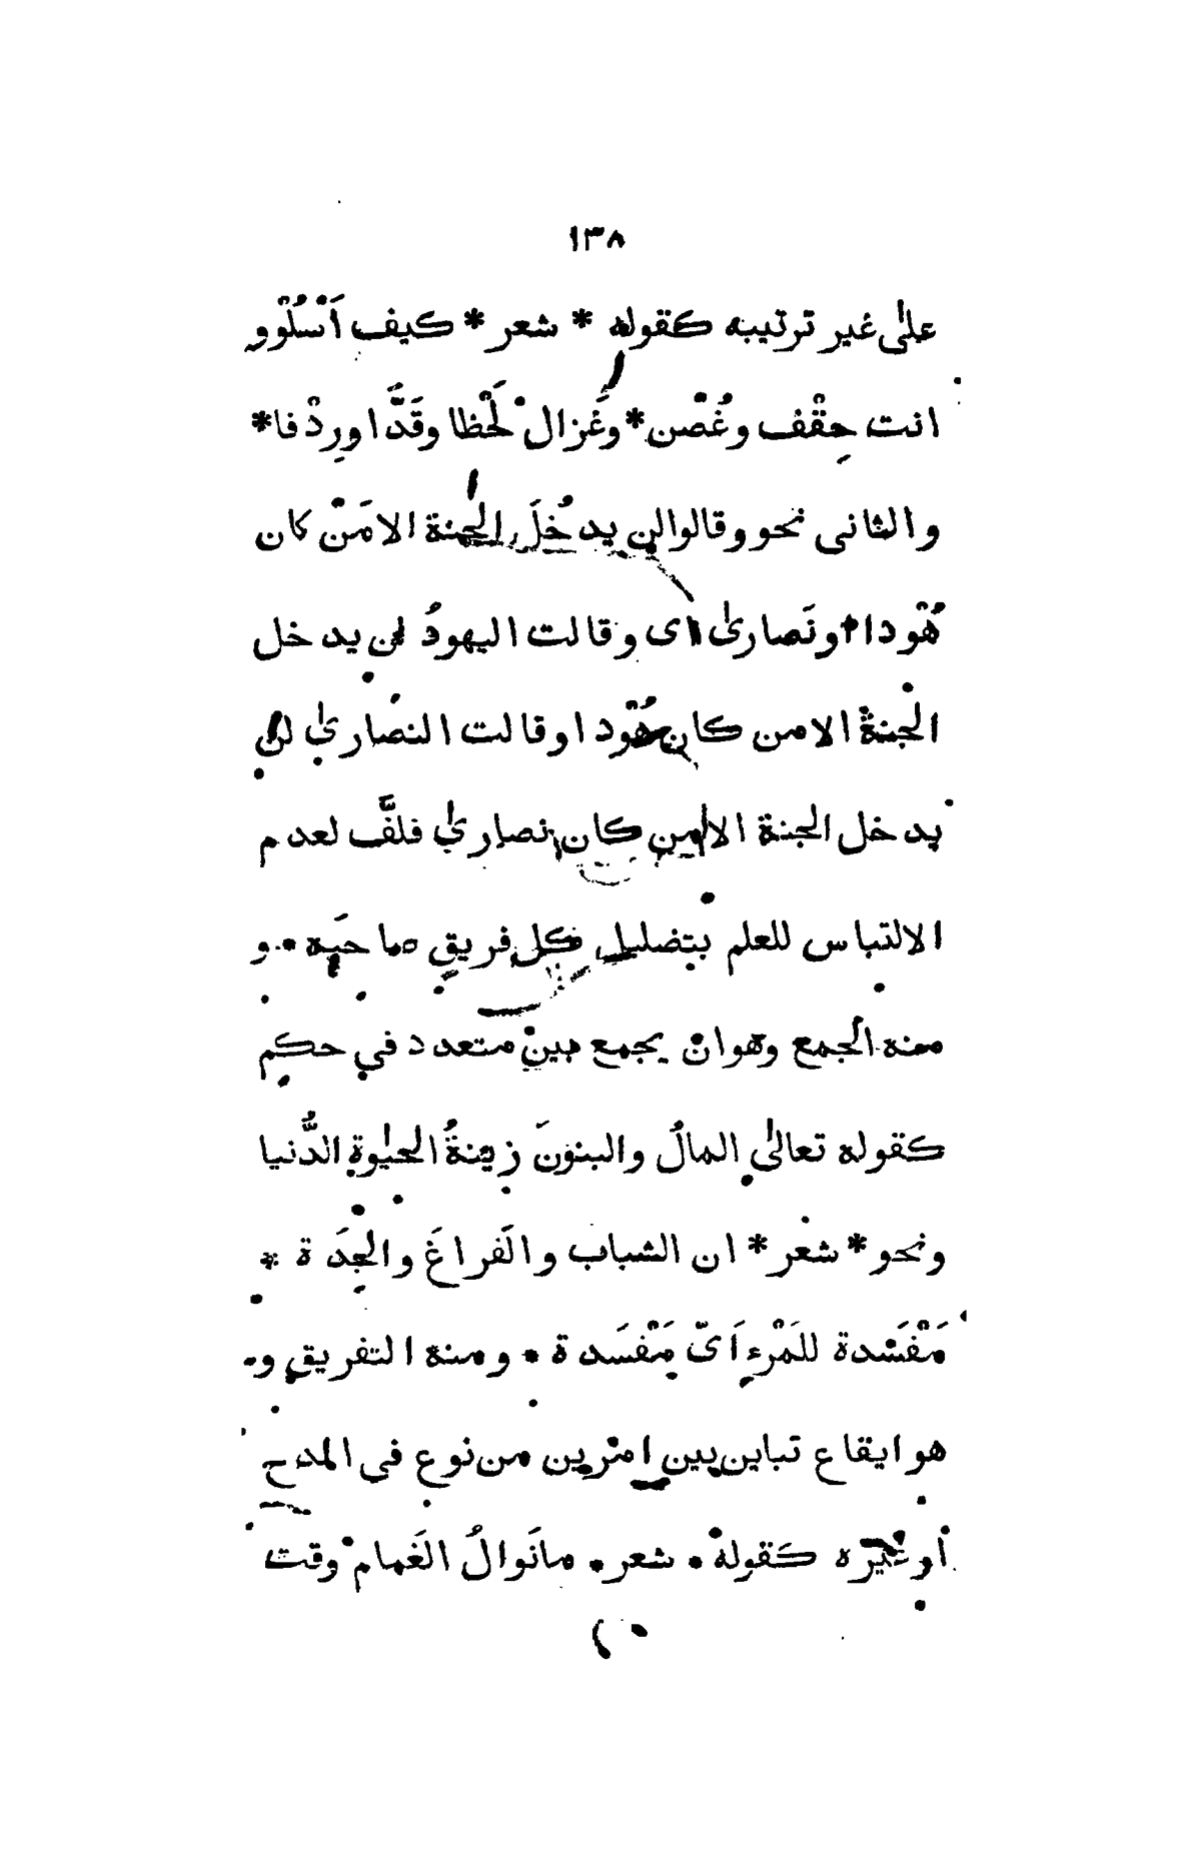 ١٣٨
علىٰ غير ترتيبه كقوله * شعر * كيف اَسْلُوْو
انت حِقْف وغُصْن * وغَزالْ لَحْظا وقَدًّا ورِدْفا *
والثانى نحو وقالوا لن يدخُلَ الجنة الا مَنْ كان
هُوْدا او نَصارىٰ اى وقالت اليهودُ لن يدخل
الجنةَ الا من كان هُوْدا وقالت النصارىٰ لن
يدخل الجنة الا من كان نصارىٰ فلفَّ لعدم
الالتباس للعلم بتضليل كل فريقٍ صاحبَه • و
منه الجمع وهو انْ يجمع بينْ متعدد في حكمٍ
كقوله تعالىٰ المالُ والبنونَ زينةُ الحيٰوة الدُّنيا
ونحو * شعر * ان الشباب والفراغَ والجِدَة *
مَفْسَدة للمَرْءِ اَىّ مَفْسَدة • ومنه التفريق و
هو ايقاع تباين بين امْرين من نوع في المدح
او غيره كقوله • شعر • ما نَوالُ الغَمام وقت